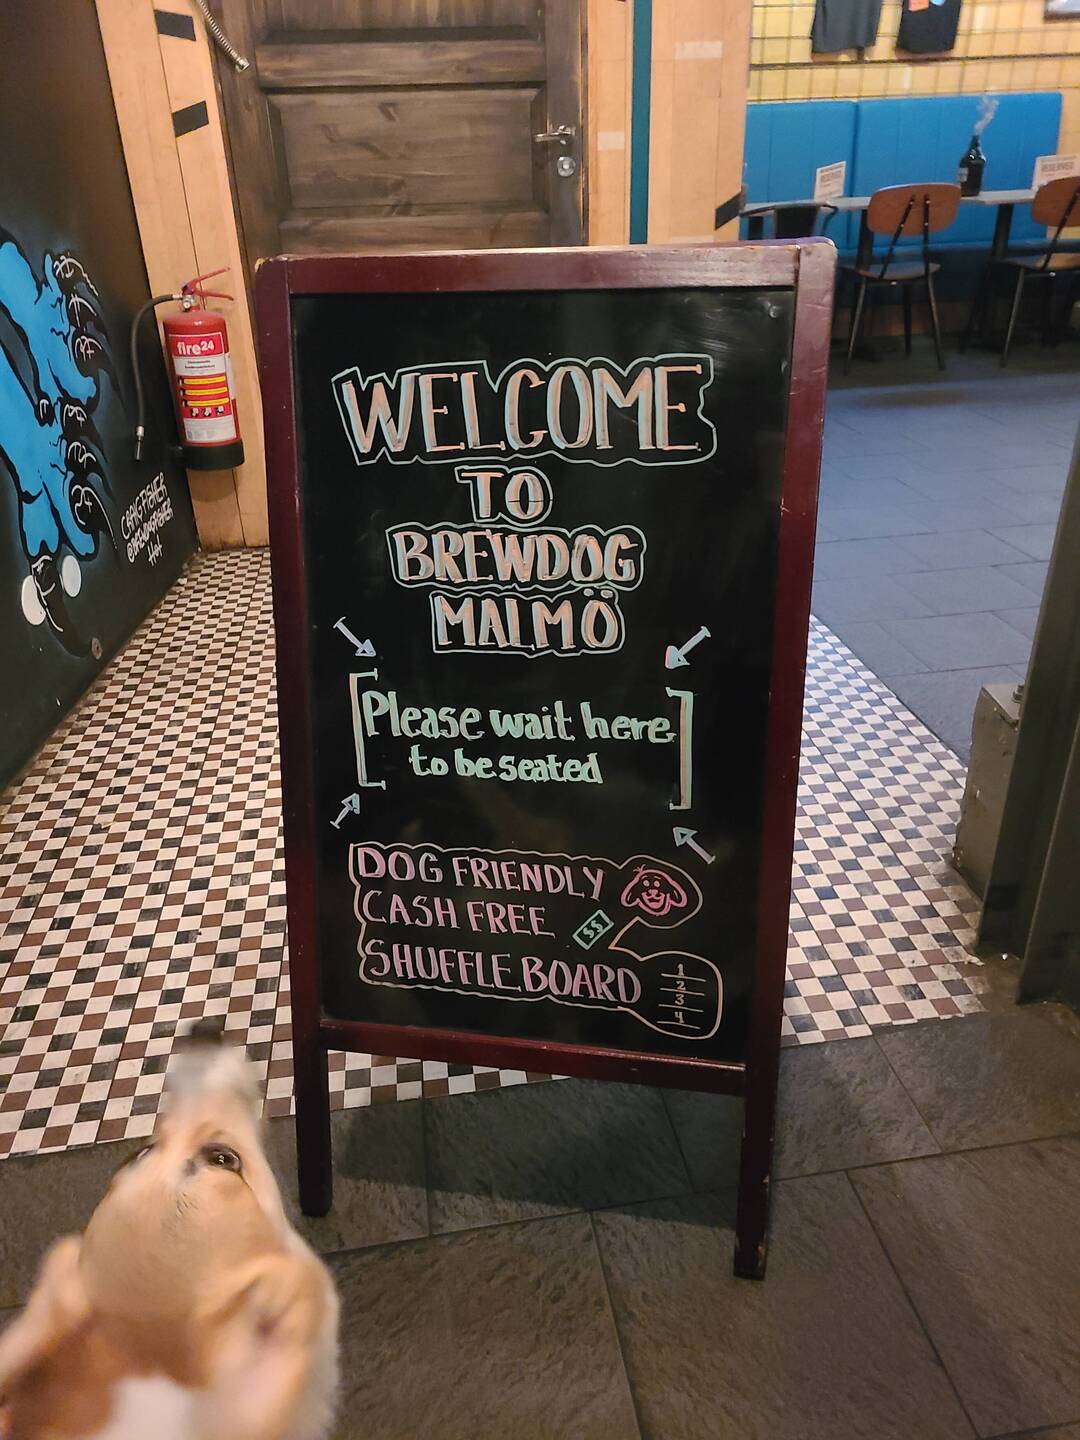 WELCOME
TO
BREWDOG
MALMÖ
[Please wait here
to be seated]
DOG FRIENDLY
CASH FREE $$
SHUFFLEBOARD
1
2
3
4
fire24
CRAIG FISHER
RESERVED